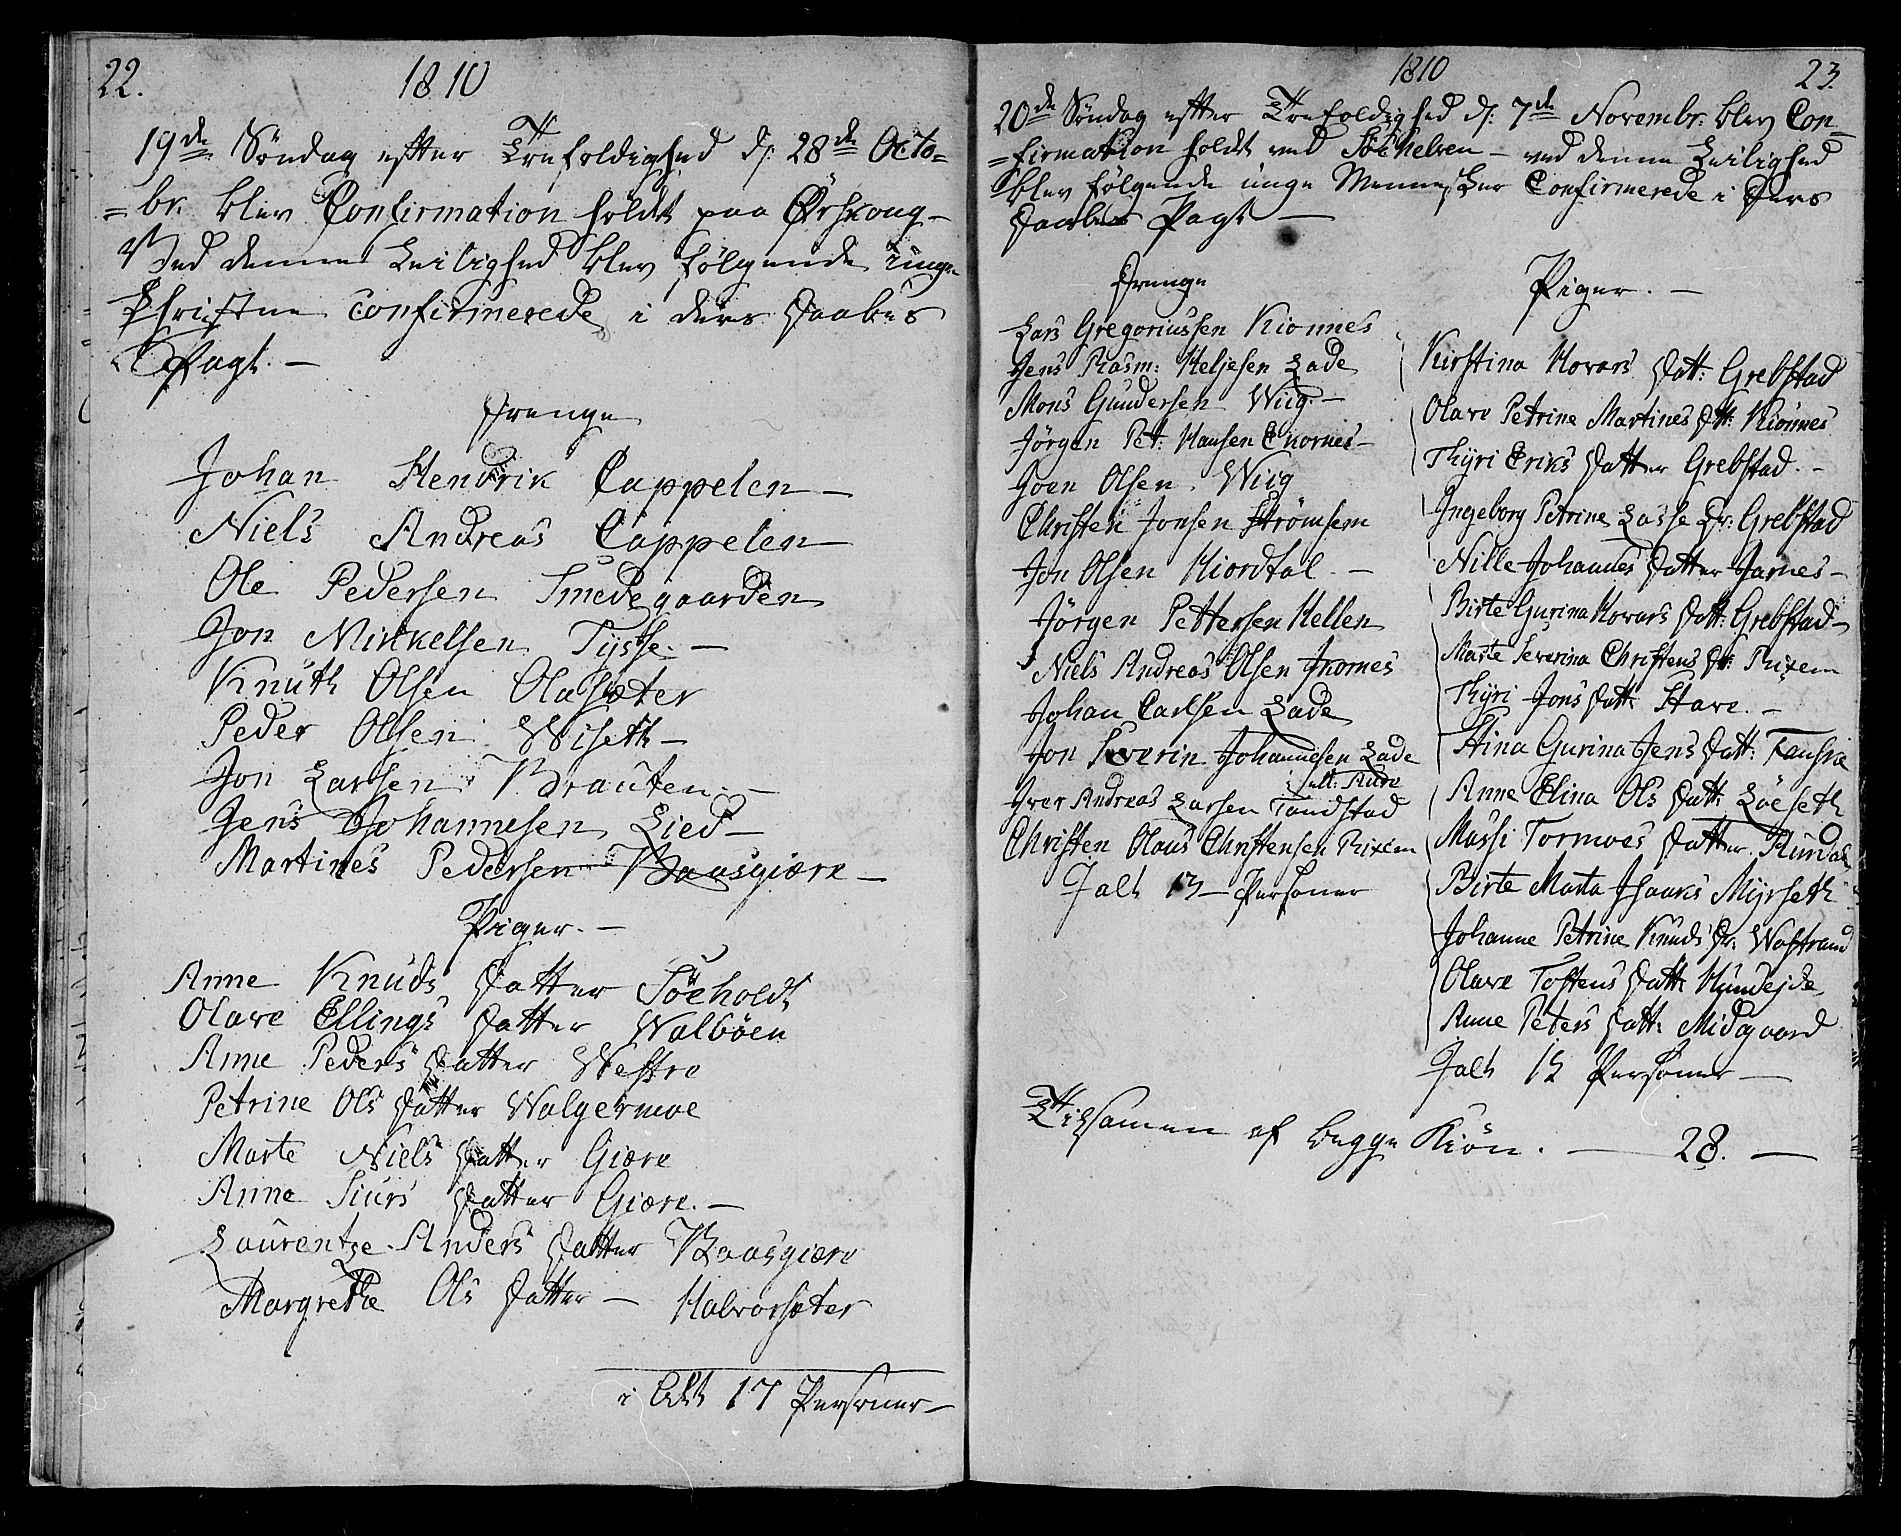 22.
1810
19de Søndag efter Trefoldighed d: 28de Octo=
=br. blev Confirmation holdt paa Ørskoug -
Ved denne Leilighed blev følgende unge
Christne confirmerede i deres Daabes
Pagt. -
Drenge
Johan Hendrik Cappelen -
Niels Andreas Cappelen -
Ole Pedersen Smedegaarden
Jon Mikkelsen Tysse. -
Knuth Olsen Olasæter
Peder Olsen Wiseth -
Jon Larsen Brauten. -
Jens Johannesen Lied -
Martines Pedersen Baasgiære -
Piger. -
Anne Knuds Datter Söeholdt
Olave Ellings Datter Walbøen
Anne Peders Datter Westre
Petrine Ols Datter Walgermoe
Marte Niels Datter Giære
Anne Siurs Datter Giære. -
Laurentze Anders Datter Baasgiære
Margrethe Ols Datter - Halvorsæter
i Alt 17 Personer -
1810
23.
20de Søndag efter Trefoldighed d: 7de Novembr: blev Con=
=firmation holdt ved - ved denne Leilighed
blev følgende unge Mennesker Confirmerede i Ders
Daabes Pagt -
Drenge
Lars Gregoriussen Kionnes
Jens Rasm: Heljesen Lade
Mons Gundersen Wiig -
Jörgen Pet: Hansen Enornes -
Joen Olsen Wiig
Christen Jonsen Strömsem
Jon Olsen Hiordtal. -
Jörgen Pettersen Hellen
Niels Andreas Olsen Jnornes
Johan Carlsen Lade
Jon Severin Johannesen Lade
Aure
Iver Andreas Larsen Tandstad
Christen Olaus Christensen Rixem
Jalt 13 - Personer
Piger. -
Kirstina Hovars Datt: Grebstad
Olave Petrine Martines Dtt: Kiönnes
Thÿri Eriks Datter Grebstad. -
Ingeborg Petrine Lasse Dr: Grebstad
Nille Johannes Datter Jarnes -
Birte Gurina Hovars Datt: Grebstad -
Marte Severina Christens Dr: Rixem
Thÿri Jons Datt: Stave. -
Stina Gurina Jens Datt:
Anne Elina Ols Datt: Löeseth
Massi Tormoes Datter Rurdal
Birte Marta Isaaks Mÿrseth
Johanne Petrine Knuds Dr: Wastrand
Olave Tostens Datt: Hundejde
Anne Peters Datt: Midgaard
Jalt 15 Personer -
Tilsamen af begge Kiön. - 28. -